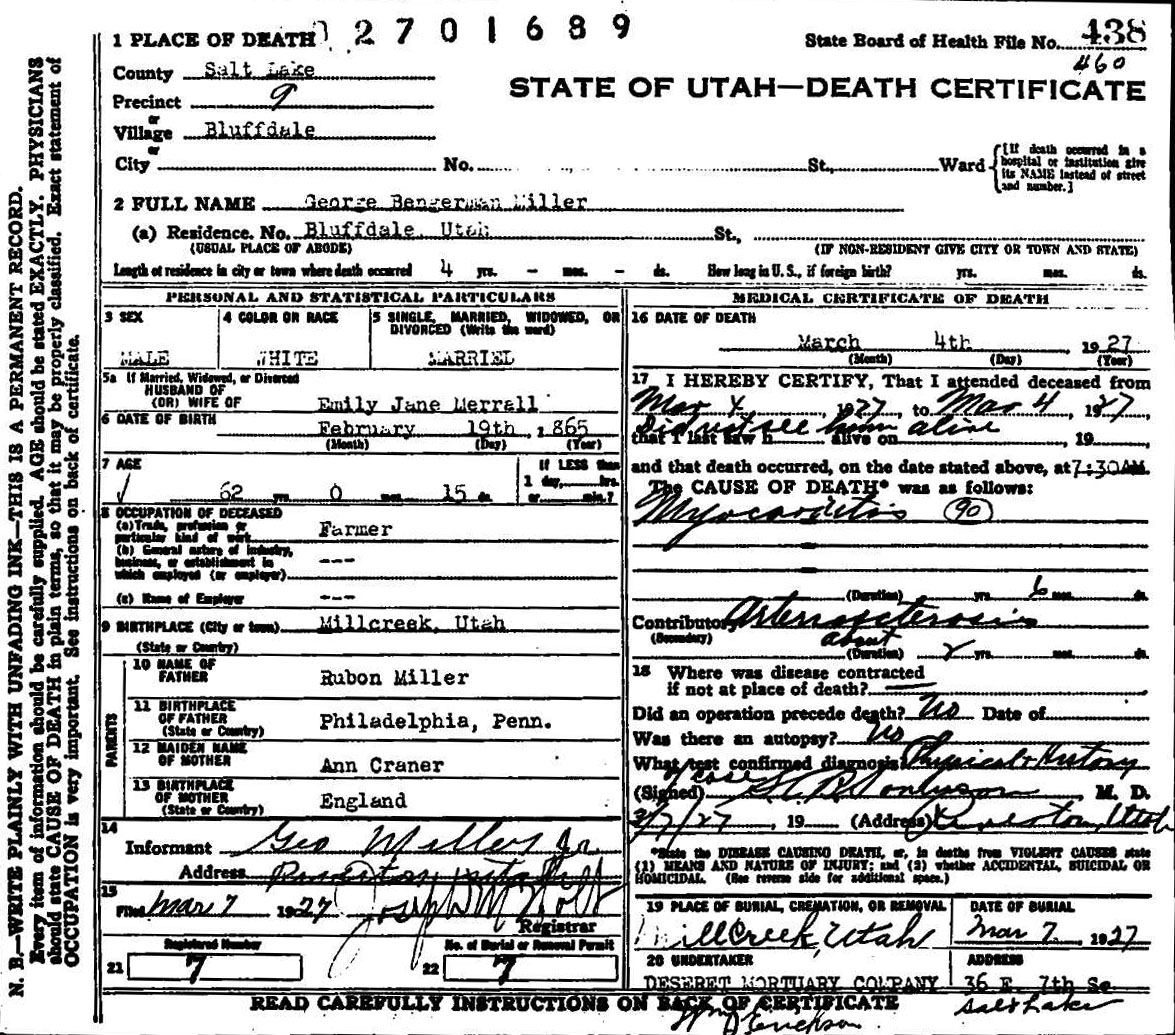 2701689
1 PLACE OF DEATH
State Board of Health File No. 438
460
County Salt Lake
STATE OF UTAH—DEATH CERTIFICATE
Precinct 9
or
Village Bluffdale
or
City No. St., Ward
[If death occurred in a hospital or institution give its NAME instead of street and number.]
2 FULL NAME George Bengerman Miller
(a) Residence. No. Bluffdale, Utah St.,
(USUAL PLACE OF ABODE) (IF NON-RESIDENT GIVE CITY OR TOWN AND STATE)
Length of residence in city or town where death occurred 4 yrs. - mos. - ds. How long in U. S., if foreign birth? yrs. mos. ds.
PERSONAL AND STATISTICAL PARTICULARS
3 SEX
MALE
4 COLOR OR RACE
WHITE
5 SINGLE, MARRIED, WIDOWED, OR DIVORCED (Write the word)
MARRIED
5a If Married, Widowed, or Divorced
HUSBAND OF
(OR) WIFE OF Emily Jane Merrall
6 DATE OF BIRTH
February 19th, 1865
(Month) (Day) (Year)
7 AGE
62 yrs. 0 mos. 15 ds.
If LESS than
1 day, hrs.
or min.?
8 OCCUPATION OF DECEASED
(a) Trade, profession or
particular kind of work Farmer
(b) General nature of industry,
business, or establishment in
which employed (or employer) ---
(c) Name of Employer ---
9 BIRTHPLACE (City or town) Millcreek, Utah
(State or Country)
PARENTS
10 NAME OF
FATHER Rubon Miller
11 BIRTHPLACE
OF FATHER
(State or Country) Philadelphia, Penn.
12 MAIDEN NAME
OF MOTHER Ann Craner
13 BIRTHPLACE
OF MOTHER
(State or Country) England
14
Informant Geo Miller Jr
Address Riverton Utah
15
Filed Mar 7 1927 Joseph M Holt
Registrar
Registered Number
21 7
No. of Burial or Removal Permit
22 7
MEDICAL CERTIFICATE OF DEATH
16 DATE OF DEATH
March 4th 1927
(Month) (Day) (Year)
17 I HEREBY CERTIFY, That I attended deceased from
Mar 4, 1927, to Mar 4, 1927
Did not see him alive
that I last saw h alive on , 19 ,
and that death occurred, on the date stated above, at 7:30 AM.
The CAUSE OF DEATH* was as follows:
Myocarditis 90
(Duration) yrs. 6 mos. ds.
Contributory Arteriosclerosis
(Secondary) about
(Duration) 2 yrs. mos. ds.
18 Where was disease contracted
if not at place of death? —
Did an operation precede death? No Date of
Was there an autopsy? No
What test confirmed diagnosis? Physical & History
of case
(Signed) M. D.
3/7/27, 19 (Address) Riverton, Utah
*State the DISEASE CAUSING DEATH, or, in deaths from VIOLENT CAUSES state
(1) MEANS AND NATURE OF INJURY; and (2) whether ACCIDENTAL, SUICIDAL OR
HOMICIDAL. (See reverse side for additional space.)
19 PLACE OF BURIAL, CREMATION, OR REMOVAL
Mill Creek, Utah
DATE OF BURIAL
Mar 7, 1927
20 UNDERTAKER
DESERET MORTUARY COMPANY
ADDRESS
36 E. 7th So
Salt Lake
READ CAREFULLY INSTRUCTIONS ON BACK OF CERTIFICATE
Wm D Erickson
N. B.—WRITE PLAINLY WITH UNFADING INK—THIS IS A PERMANENT RECORD.
Every item of information should be carefully supplied. AGE should be stated EXACTLY. PHYSICIANS
should state CAUSE OF DEATH in plain terms, so that it may be properly classified. Exact statement of
OCCUPATION is very important. See instructions on back of certificate.